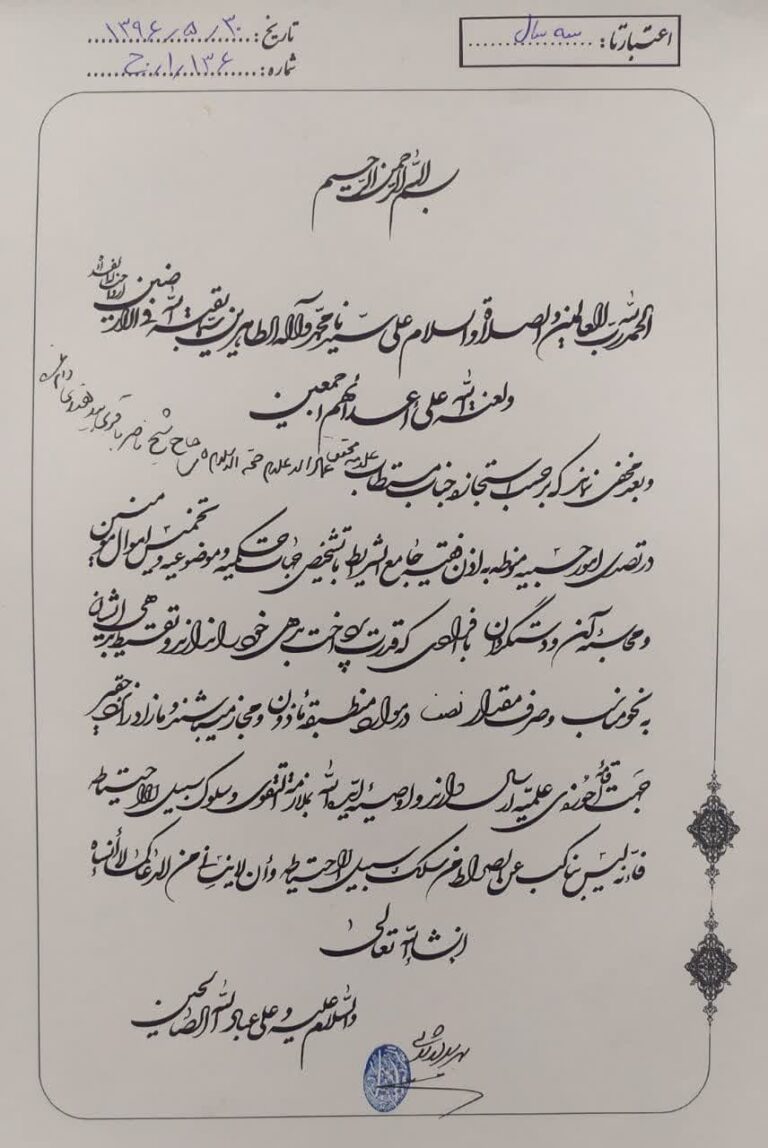 اعتبار تا: سه سال
تاریخ: ۱۳۹۶/۵/۳۰
شماره: ۱۳۶/۱/ج
بسم الله الرحمن الرحیم
الحمدلله رب العالمین والصلاة والسلام علی سیدنا محمد وآله الطاهرین سیما بقیة الله فی الارضین ارواحنا له الفداء
ولعنة الله علی أعدائهم اجمعین
وبعد مخفی نماند که برحسب استجازه جناب مستطاب علامه محقق عماد الاعلام حجة الاسلام حاج شیخ ناصر باقری بیدهندی
در تصدی امور حسبیه منوطه به اذن فقیه جامع الشرایط با تشخیص جهات حکمیه و موضوعیه و تخمیس اموال مومنین
و محاسبه آن و دستگردان با افرادی که قدرت پرداخت بدهی خود را ندارند و تقسیط بدهی ایشان
به نحو مناسب و صرف مقدار نصف در موارد منطبقه ماذون و مجاز میباشند و مازاد را نزد حقیر
جهت اقامه حوزه‌ی علمیه ارسال دارند و اوصیه ایده الله بملازمة التقوی و سلوک سبیل الاحتیاط
فإنه لیس بناکب عن الصراط من سلک سبیل الاحتیاط وأن لاینسانی من الدعاء کما لا أنساه
انشاءالله تعالی
والسلام علیه و علی عباد الله الصالحین